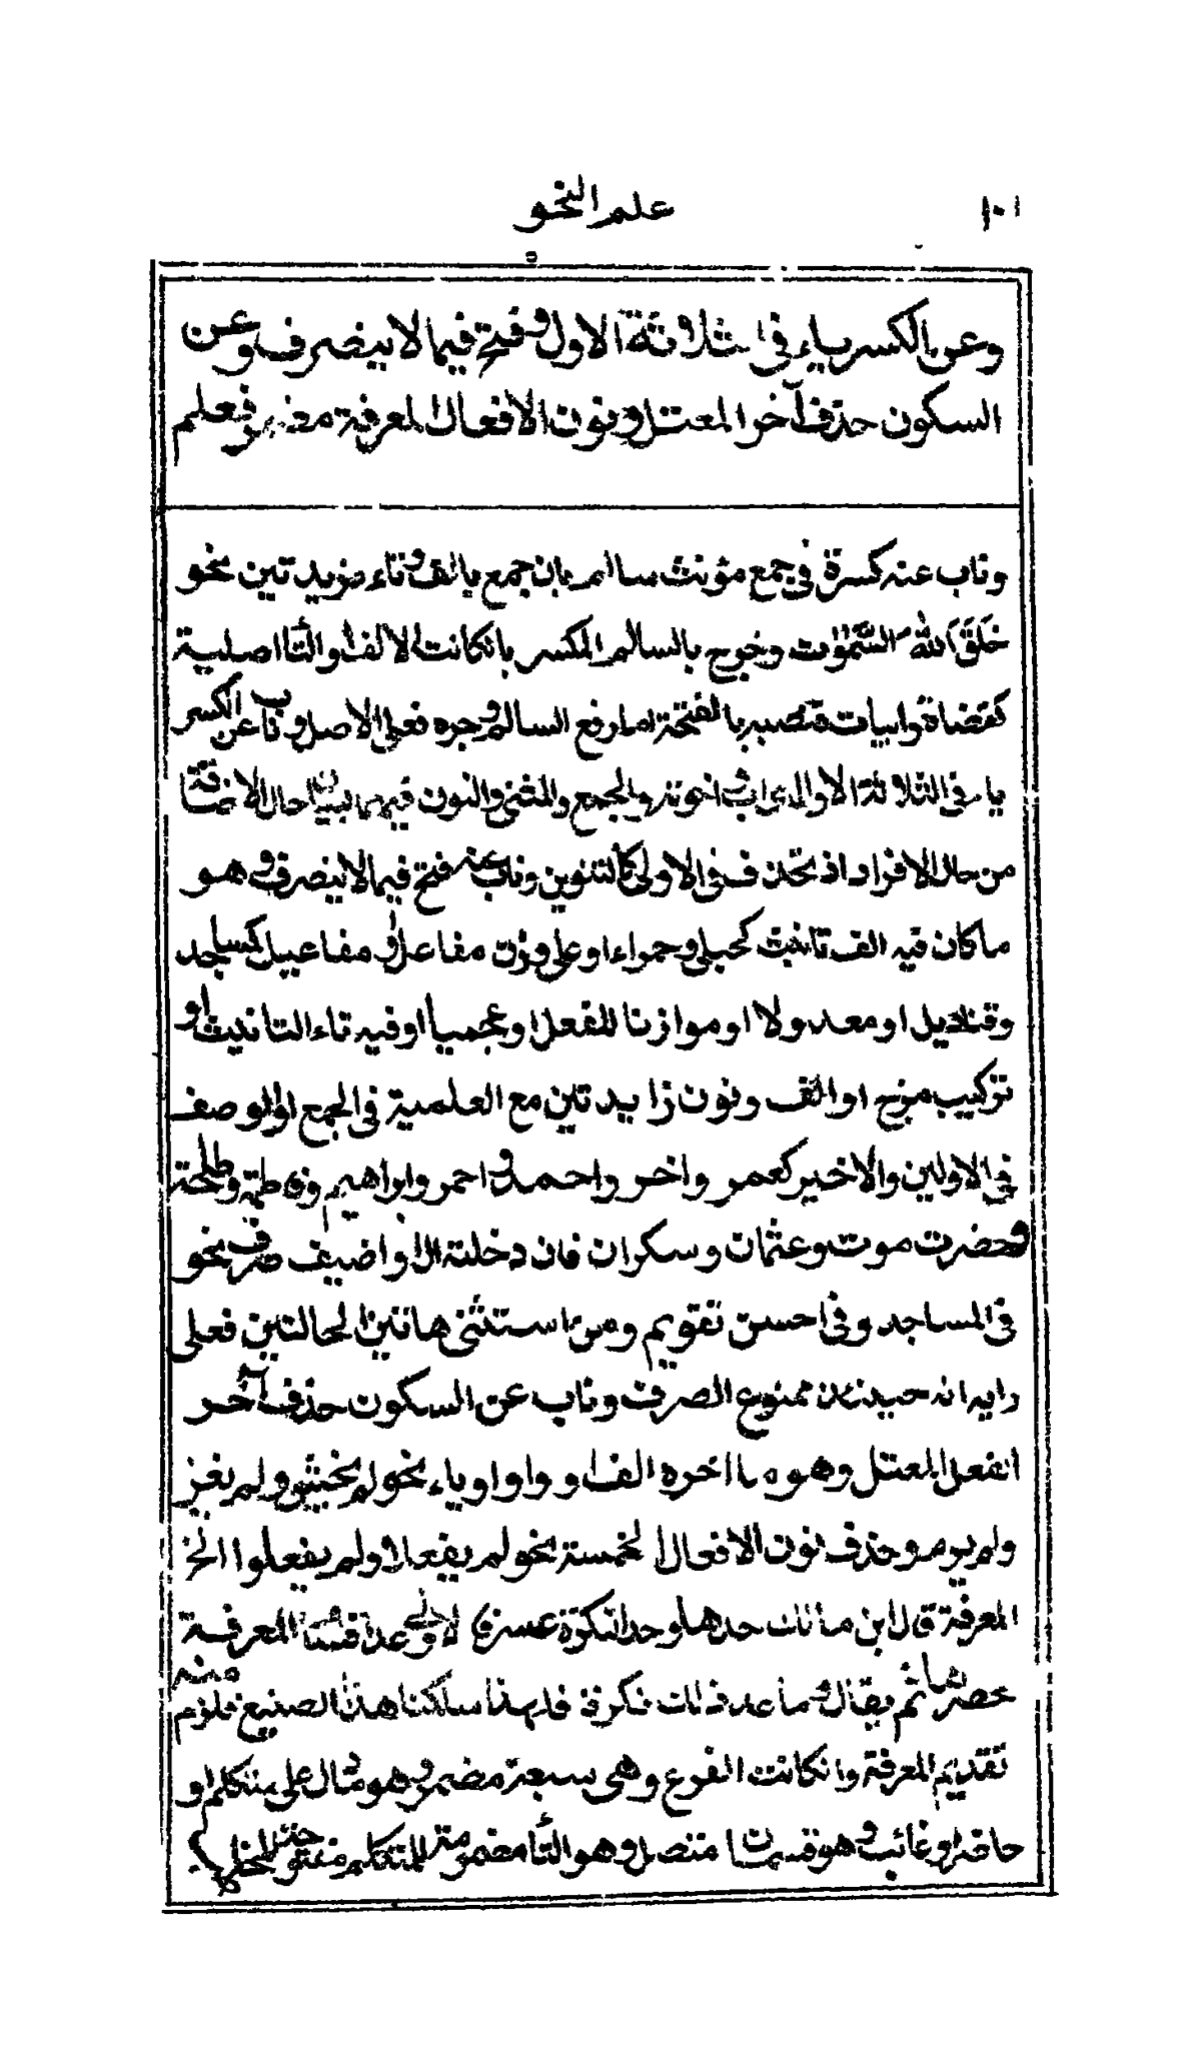 ١٠١
علم النحو
وعن الكسر ياء في الثلاثة الاول وفتح فيما لا ينصرف وعن
السكون حذف آخر المعتل ونون الافعال المعرفة مضمر فعلم
وناب عنه كسرة في جمع مؤنث سالم بان جمع بالف وتاء مزيدتين نحو
خَلَقَ اللهُ السَّمٰوٰت وخرج بالسالم المكسر بان كانت الالف او التا اصلية
كقضاة وابيات فتنصب بالفتحة اما رفع السالم وجره فعلى الاصل وناب عن الكسر
ياء في الثلاثة الاول اي اب واخوته والجمع والمثنى والنون فيهما لبيان حال الاضافة
من حال الافراد اذ تحذف في الاولى كالتنوين وناب عنه فتح فيما لا ينصرف وهو
ما كان فيه الف تانيث كحبلى وحمراء او على وزن مفاعل او مفاعيل كمساجد
وقناديل او معدولا او موازنا للفعل او عجميا او فيه تاء التانيث او
تركيب مزج او الف ونون زايدتين مع العلمية في الجميع او الوصف
في الاولين والاخير كعمر واخر واحمد واحمر وابراهيم وفاطمة وطلحة
وحضرت موت وعثمان وسكران فان دخلته ال او اضيف صرف نحو
في المساجد وفي احسن تقويم ومن استثنى هاتين الحالتين فعلى
رايه انه حينئذ ممنوع الصرف وناب عن السكون حذف آخر
الفعل المعتل وهو ما اخره الف او واو او ياء نحو لم يخش ولم يغز
ولم يرم وحذف نون الافعال الخمسة نحو لم يفعلا ولم يفعلوا الخ
المعرفة قال ابن مالك حدها وحد النكرة عسر فالاولى عد اقسام المعرفة
لحصرها ثم يقال وما عدا ذلك نكرة فلهذا سلكنا هذا الصنيع فلزم منه
تقديم المعرفة وان كانت الفرع وهي سبعة مضمر وهو ما دل على متكلم او
حاضر او غائب وهو قسمان متصل وهو التا مضمومة للمتكلم مفتوحة للمخاطب